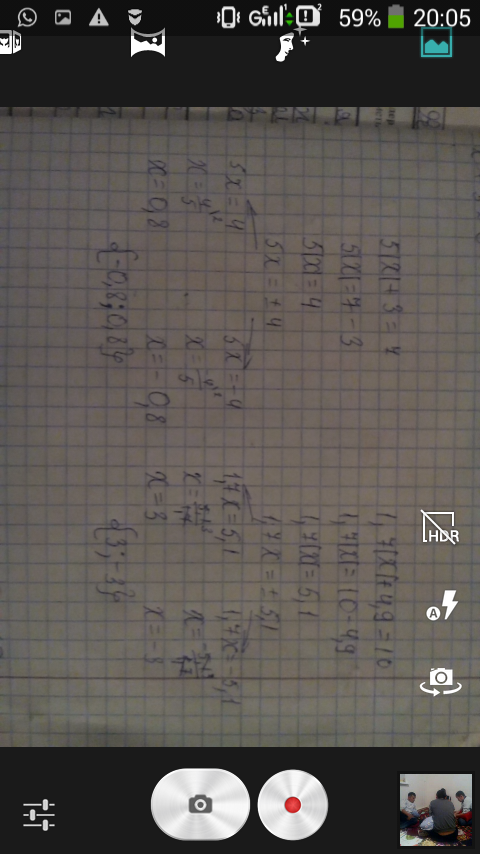 59% 20:05
5|x|+3=7
5|x|=7-3
5|x|=4
5x=±4
5x=4 5x=-4
x=4/5 x=-4/5
x=0,8 x=-0,8
{-0,8; 0,8}
1,7|x|+4,9=10
1,7|x|=10-4,9
1,7|x|=5,1
1,7x=±5,1
1,7x=5,1 1,7x=-5,1
x=3 x=-3
{3; -3}
HDR
A